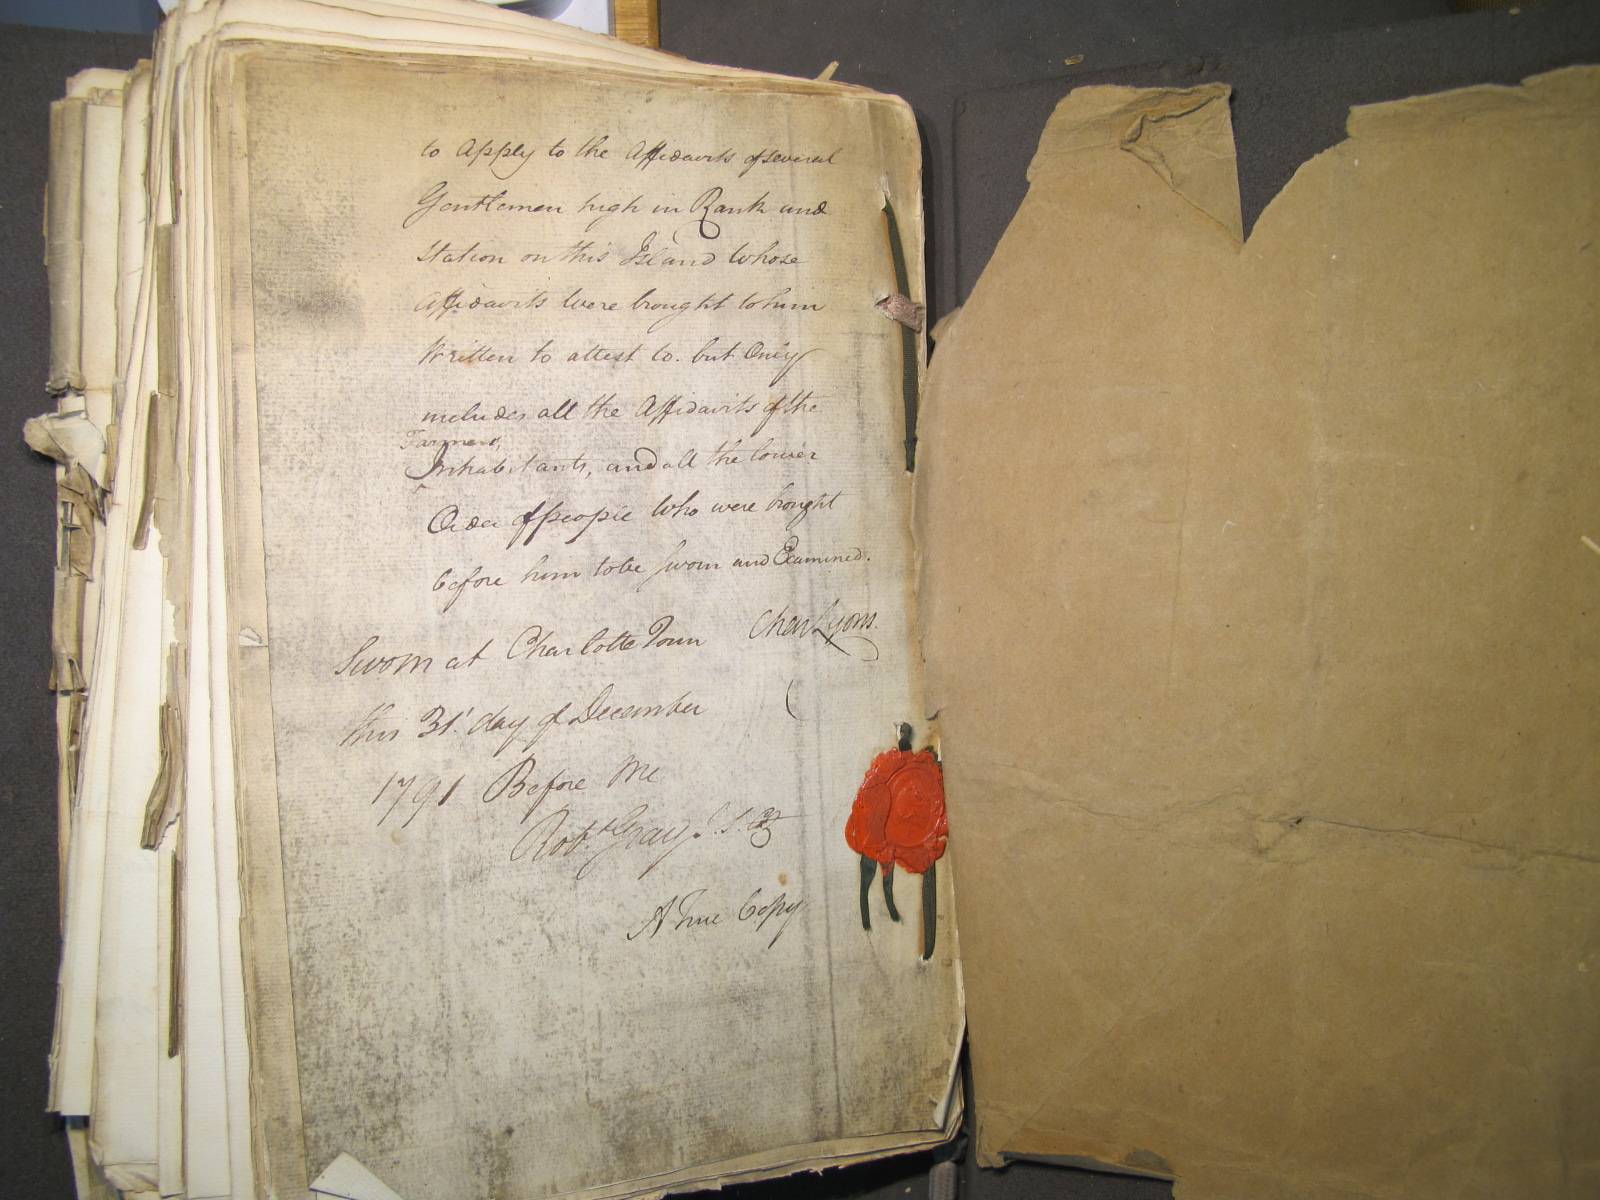 to Apply to the Affidavits of several
Gentlemen high in Rank and
Station on this Island Whose
Affidavits Were brought to him
Written to attest to. but Only
includes all the Affidavits of the
Farmers,
Inhabitants, and all the lower
Order of people Who were brought
before him to be Sworn and Examined.
Sworn at Charlotte Town Chas Lyons.
this 31st day of December
1791 Before Me
Robt Gray J.
A True Copy